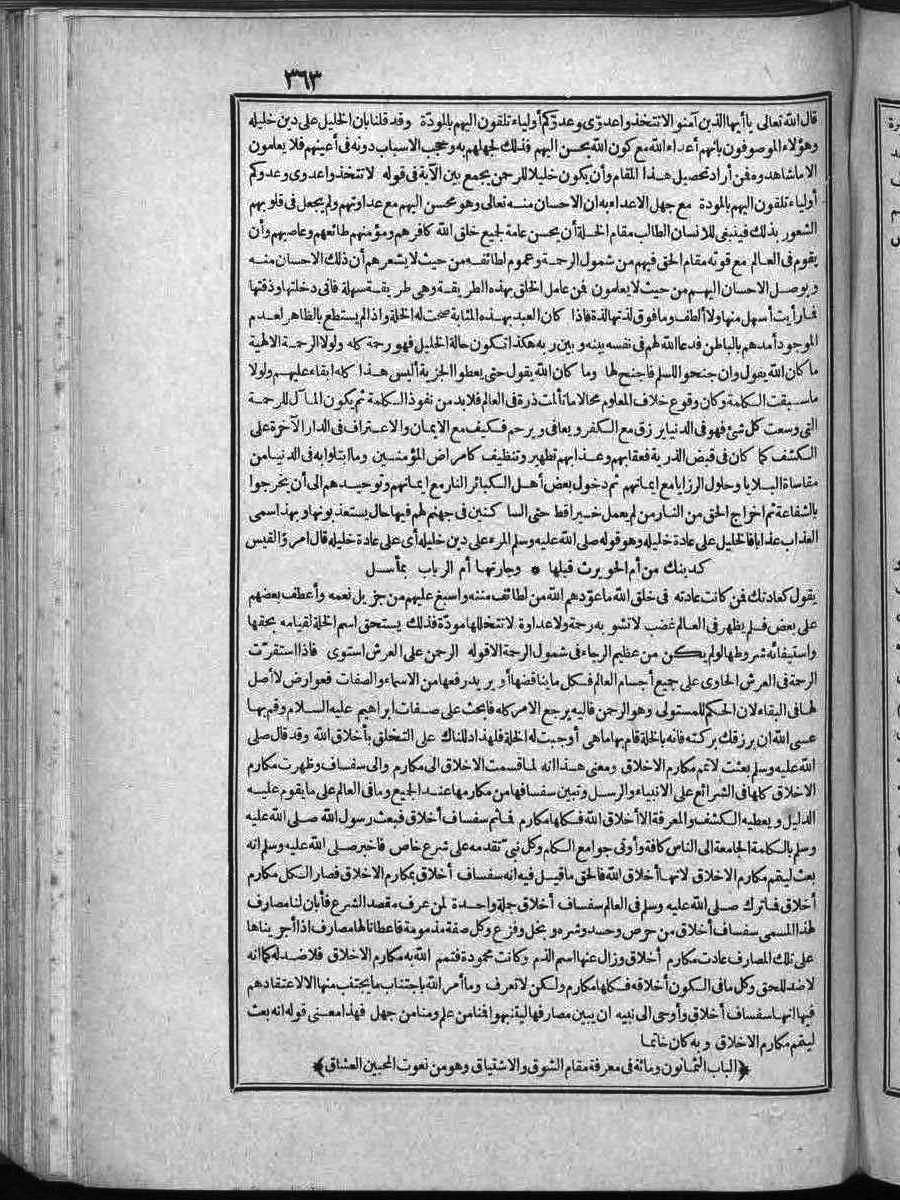 ٣٦٣
قال الله تعالى يا أيها الذين آمنوا لا تتخذوا عدوّى وعدوّكم أولياء تلقون اليهم بالمودّة وقد قلنا بان الخليل على دين خليله
وهؤلاء الموصوفون بانهم أعداء الله مع كون الله يحسن اليهم فذلك لجهلهم به وحجب الاسباب دونه فى أعينهم فلا يعلمون
الا ما شاهدوه فمن أراد تحصيل هذا المقام وأن يكون خليلا للرحمن يجمع بين الآية فى قوله لا تتخذوا عدوى وعدوكم
أولياء تلقون اليهم بالمودة مع جهل الاعداء به ان الاحسان منه تعالى وهو محسن اليهم مع عداوتهم ولم يجعل فى قلوبهم
الشعور بذلك فينبغى للانسان الطالب مقام الخلة أن يحسن عامة لجميع خلق الله كافرهم ومؤمنهم طائعهم وعاصيهم وأن
يقوم فى العالم مع قوته مقام الحق فيهم من شمول الرحمة وعموم لطائفه من حيث لا يشعرهم أن ذلك الاحسان منه
ويوصل الاحسان اليهم من حيث لا يعلمون فمن عامل الخلق بهذه الطريقة وهى طريقة سهلة فانى دخلتها وذقتها
فما رأيت أسهل منها ولا ألطف وما فوق لذتها لذة فاذا كان العبد بهذه المثابة صحت له الخلة واذا لم يستطع بالظاهر لعدم
الموجود أمدهم بالباطن فدعا الله لهم فى نفسه بينه وبين ربه هكذا تكون حالة الخليل فهو رحمة كله ولولا الرحمة الالهية
ما كان الله يقول وان جنحوا للسلم فاجنح لها وما كان الله يقول حتى يعطوا الجزية أليس هذا كله ابقاء عليهم ولولا
ما سبقت الكلمة وكان وقوع خلاف المعلوم محالا ما تألمت ذرة فى العالم فلا بد من نفوذ الكلمة ثم يكون المآل للرحمة
التى وسعت كل شئ فهو فى الدنيا يرزق مع الكفر ويعافى ويرحم فكيف مع الايمان والاعتراف فى الدار الآخرة على
الكشف كما كان فى قبض الذرية فعقابهم وعذابهم تطهير وتنظيف كامراض المؤمنين وما ابتلوا به فى الدنيا من
مقاساة البلايا وحلول الرزايا مع ايمانهم ثم دخول بعض أهل الكبائر النار مع ايمانهم وتوحيدهم الى أن يخرجوا
بالشفاعة ثم اخراج الحق من النار من لم يعمل خيرا قط حتى الساكنين فى جهنم لهم فيها حال يستعذبونها وبهذا سمى
العذاب عذابا فالخليل على عادة خليله وهو قوله صلى الله عليه وسلم المرء على دين خليله أى على عادة خليله قال امرؤ القيس
كدينك من أم الحويرث قبلها * وجارتها أم الرباب بمأسل
يقول كعادتك فمن كانت عادته فى خلق الله ما عوّدهم الله من لطائف مننه واسبغ عليهم من جزيل نعمه وأعطف بعضهم
على بعض فلم يظهر فى العالم غضب لا تشوبه رحمة ولا عداوة لا تتخللها مودّة فذلك يستحق اسم الخلة لقيامه بحقها
واستيفائه شروطها ولو لم يكن من عظيم الرجاء فى شمول الرحمة الا قوله الرحمن على العرش استوى فاذا استقرّت
الرحمة فى العرش الحاوى على جميع أجسام العالم فكل ما يناقضها أو يريد رفعها من الاسماء والصفات فعوارض لا أصل
لها فى البقاء لان الحكم للمستولى وهو الرحمن فاليه يرجع الامر كله فابحث على صفات ابراهيم عليه السلام وقم بها
عسى الله ان يرزقك بركته فانه بالخلة قام بها ما هى أوجبت له الخلة فلهذا دللناك على التخلق بأخلاق الله وقد قال صلى
الله عليه وسلم بعثت لاتمم مكارم الاخلاق ومعنى هذا انه لما قسمت الاخلاق الى مكارم والى سفساف وظهرت مكارم
الاخلاق كلها فى الشرائع على الانبياء والرسل وتبين سفسافها من مكارمها عند الجميع وما فى العالم على ما يقوم عليه
الدليل ويعطيه الكشف والمعرفة الا أخلاق الله فكلها مكارم فما ثم سفساف أخلاق فبعث رسول الله صلى الله عليه
وسلم بالكلمة الجامعة الى الناس كافة وأوتى جوامع الكلم وكل نبىّ تقدمه على شرع خاص فاخبر صلى الله عليه وسلم انه
بعث ليتمم مكارم الاخلاق لانها أخلاق الله فالحق ما قيل فيه انه سفساف أخلاق بمكارم الاخلاق فصار الكل مكارم
أخلاق فما ترك صلى الله عليه وسلم فى العالم سفساف أخلاق جملة واحدة لمن عرف مقصد الشرع فأبان لنا مصارف
لهذا المسمى سفساف أخلاق من حرص وحسد وشره وبخل وفزع وكل صفة مذمومة فاعطانا لها مصارف اذا أجريناها
على تلك المصارف عادت مكارم أخلاق وزال عنها اسم الذم وكانت محمودة فتمم الله به مكارم الاخلاق فلا ضد له كما انه
لا ضد للحق وكل ما فى الكون أخلاقه فكلها مكارم ولكن لا تعرف وما أمر الله باجتناب ما يجتنب منها الا لاعتقادهم
فيها انها سفساف أخلاق وأوحى الى نبيه ان يبين مصارفها ليتنبهوا فمنا من علم ومنا من جهل فهذا معنى قوله انه بعث
ليتمم مكارم الاخلاق وبه كان خاتما
﴿الباب الثمانون ومائة فى معرفة مقام الشوق والاشتياق وهو من نعوت المحبين العشاق﴾